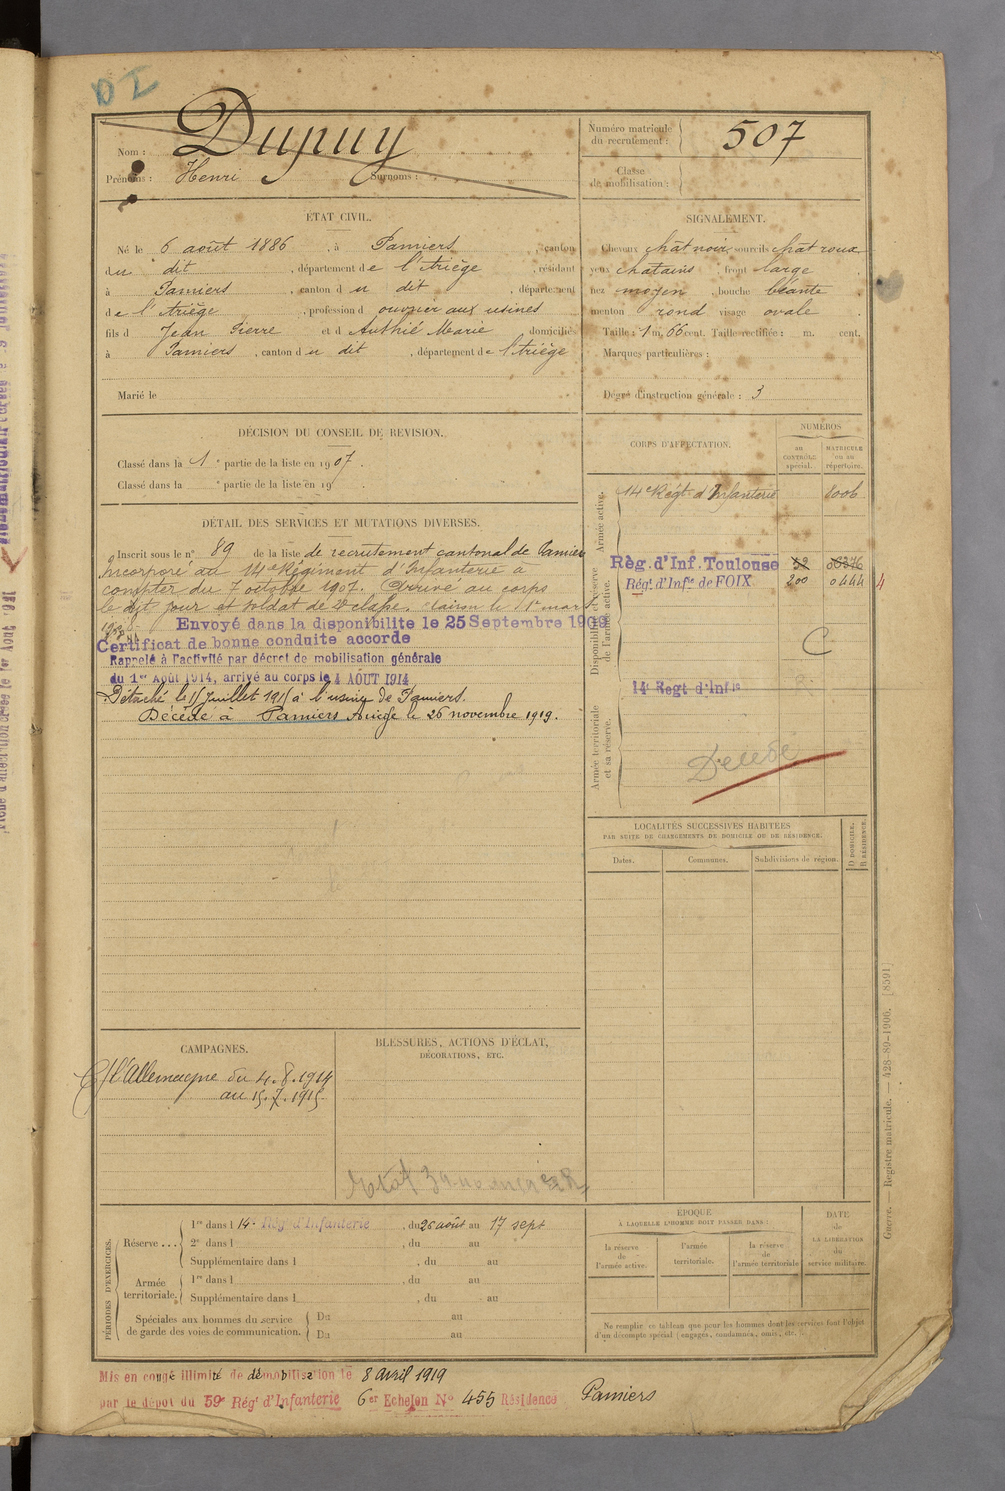 DI
Nom : Dupuy
Prénoms : Henri Surnoms :
Numéro matricule du recrutement : 507
Classe de mobilisation :
ÉTAT CIVIL.
Né le 6 août 1886, à Pamiers, canton
du dit, département de l'Ariège, résidant
à Pamiers, canton du dit, département
de l'Ariège, profession d ouvrier aux usines
fils d Jean Pierre et d Authié Marie, domiciliés
à Pamiers, canton du dit, département de l'Ariège
Marié le
SIGNALEMENT.
Cheveux chât noir sourcils chât roux
yeux chatains, front large
nez moyen, bouche béante
menton rond visage ovale
Taille : 1 m. 66 cent. Taille rectifiée : m. cent.
Marques particulières :
Degré d'instruction générale : 3
DÉCISION DU CONSEIL DE REVISION.
Classé dans la 1e partie de la liste en 1907.
Classé dans la e partie de la liste en 19
CORPS D'AFFECTATION.
NUMÉROS
au CONTRÔLE spécial.
MATRICULE ou au répertoire.
Armée active.
14e Régt d'Infanterie 8006
Disponibilité et réserve de l'armée active.
Règ. d'Inf. Toulouse 52 06376
Régt d'Infie de FOIX 200 0444
4
C
14e Regt d'Infie
Armée territoriale et sa réserve.
Décédé
DÉTAIL DES SERVICES ET MUTATIONS DIVERSES.
Inscrit sous le n° 89 de la liste de recrutement cantonal de Pamiers
Incorporé au 14e Régiment d'Infanterie à
compter du 7 octobre 1907. Arrivé au corps
le dit jour et soldat de 2e classe.
Envoyé dans la disponibilite le 25 Septembre 1909
Certificat de bonne conduite accorde
Rappelé à l'activité par décret de mobilisation générale
du 1er Août 1914, arrivé au corps le 4 AOUT 1914
Détaché le 15 Juillet 1915 à l'usine de Pamiers.
Décédé à Pamiers Ariège le 26 novembre 1919.
LOCALITÉS SUCCESSIVES HABITÉES
PAR SUITE DE CHANGEMENTS DE DOMICILE OU DE RÉSIDENCE.
Dates. Communes. Subdivisions de région. D DOMICILE. R RÉSIDENCE.
CAMPAGNES.
C/ l'Allemagne du 4.8.1914
au 15.7.1915
BLESSURES, ACTIONS D'ÉCLAT,
DÉCORATIONS, ETC.
PÉRIODES D'EXERCICES.
Réserve ...
1re dans l 14e Régt d'Infanterie, du 26 août au 17 sept
2e dans l , du au
Supplémentaire dans l , du au
Armée territoriale.
1re dans l , du au
Supplémentaire dans l , du au
Spéciales aux hommes du service de garde des voies de communication.
Du au
Du au
ÉPOQUE
À LAQUELLE L'HOMME DOIT PASSER DANS :
la réserve de l'armée active.
l'armée territoriale.
la réserve de l'armée territoriale
DATE de LA LIBÉRATION du service militaire.
Ne remplir ce tableau que pour les hommes dont les services font l'objet
d'un décompte spécial (engagés, condamnés, omis, etc.
Guerre. — Registre matricule. — 428-89-1906. [8591]
Mis en congé illimité de démobilisation le 8 avril 1919
par le dépôt du 59e Régt d'Infanterie 6er Echelon No 455 Résidence Pamiers